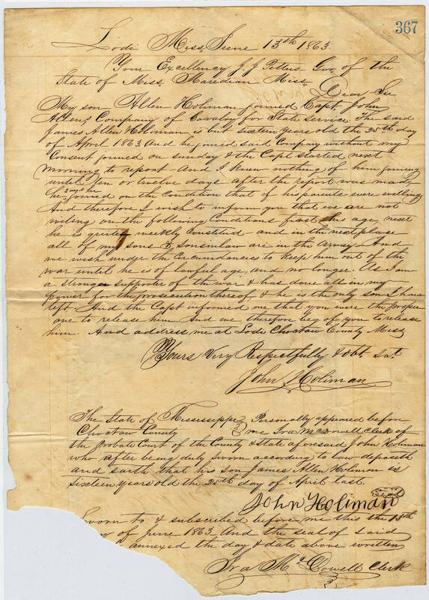 367
Lodi Miss June 13th 1863
Your Excellency J J Pettus Gov of the
State of Miss. Maredian Miss. Dear Sir
My son Allen Holiman joined Capt John
Company of Cavalry for State Service The said
James Allen Holiman is but sixteen years old the 25th day
of April 1863 And he joined said Company without my
Consent joined on sunday & the Capt started next
morning to report And I knew nothing of him joining
until ten or twelve days after the report was made
he joined on the that if his private were nothing
And therefore I wish to inform you that we are not
willing on the following conditions first his age, next
he is Constituted and in the next place
all of my sons & soninlaw are in the Army And
we wish under the Circumstances to keep him out of the
war until he is of lawful age, and no longer. As I am
a strong supporter of the war & has done all in my
power for the prosecution thereof & he is the only son I have
left And the Capt informed me that you was the proper
one to release him And we therefore beg of you to release
him. And address me at Lodi Choctaw County Miss
Yours Very Respectfully & obt Svt
John Holiman
The State of Mississippi Personally appeared before
Choctaw County me Ira McDowell Clerk of
the Probate Court of the County & State aforesaid John Holiman
who after being duly sworn according to law deposeth
and saith that his son James Allen Holiman is
sixteen years old the 25th day of April last.
John Holiman
Seal
Sworn to & subscribed before me this the 13th
day of june 1863 And the seal of said
annexed the day & date above written
Ira McDowell Clerk